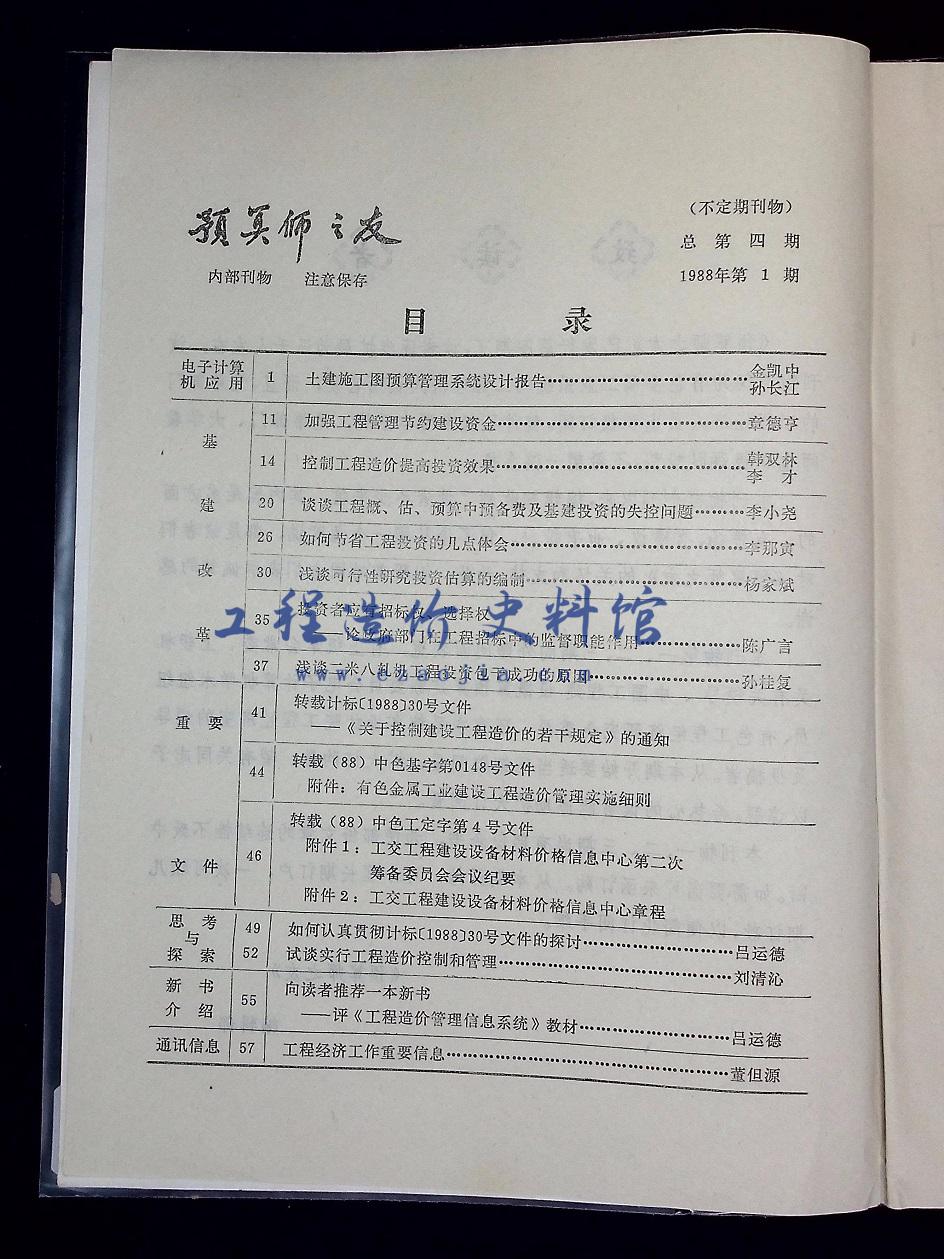 预算师之友
(不定期刊物)
总第四期
内部刊物 注意保存
1988年第1期
目 录
电子计算机应用 1 土建施工图预算管理系统设计报告 金凯中 孙长江
基建改革
11 加强工程管理节约建设资金 章德亨
14 控制工程造价提高投资效果 韩双林 李才
20 谈谈工程概、估、预算中预备费及基建投资的失控问题 李小尧
26 如何节省工程投资的几点体会 李那寅
30 浅谈可行性研究投资估算的编制 杨家斌
35 投资者应有招标权、选择权
——论政府部门在工程招标中的监督职能作用 陈广言
37 浅谈二米八轧机工程投资包干成功的原因 孙桂复
重要文件
41 转载计标〔1988〕30号文件
——《关于控制建设工程造价的若干规定》的通知
44 转载(88)中色基字第0148号文件
附件:有色金属工业建设工程造价管理实施细则
46 转载(88)中色工定字第4号文件
附件1:工交工程建设设备材料价格信息中心第二次
筹备委员会会议纪要
附件2:工交工程建设设备材料价格信息中心章程
思考与探索
49 如何认真贯彻计标〔1988〕30号文件的探讨 吕运德
52 试谈实行工程造价控制和管理 刘清沁
新书介绍
55 向读者推荐一本新书
——评《工程造价管理信息系统》教材 吕运德
通讯信息 57 工程经济工作重要信息 董但源
工程造价史料馆
www.czaojia.com